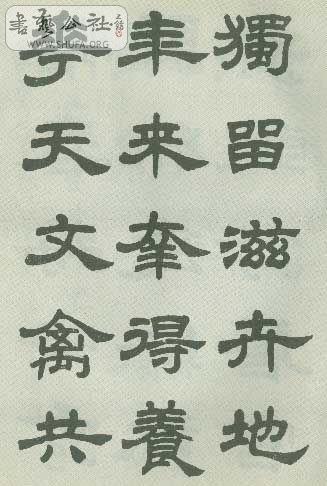 獨留滋卉地
年来幸得養
天文禽共
書藝公社
WWW.SHUFA.ORG